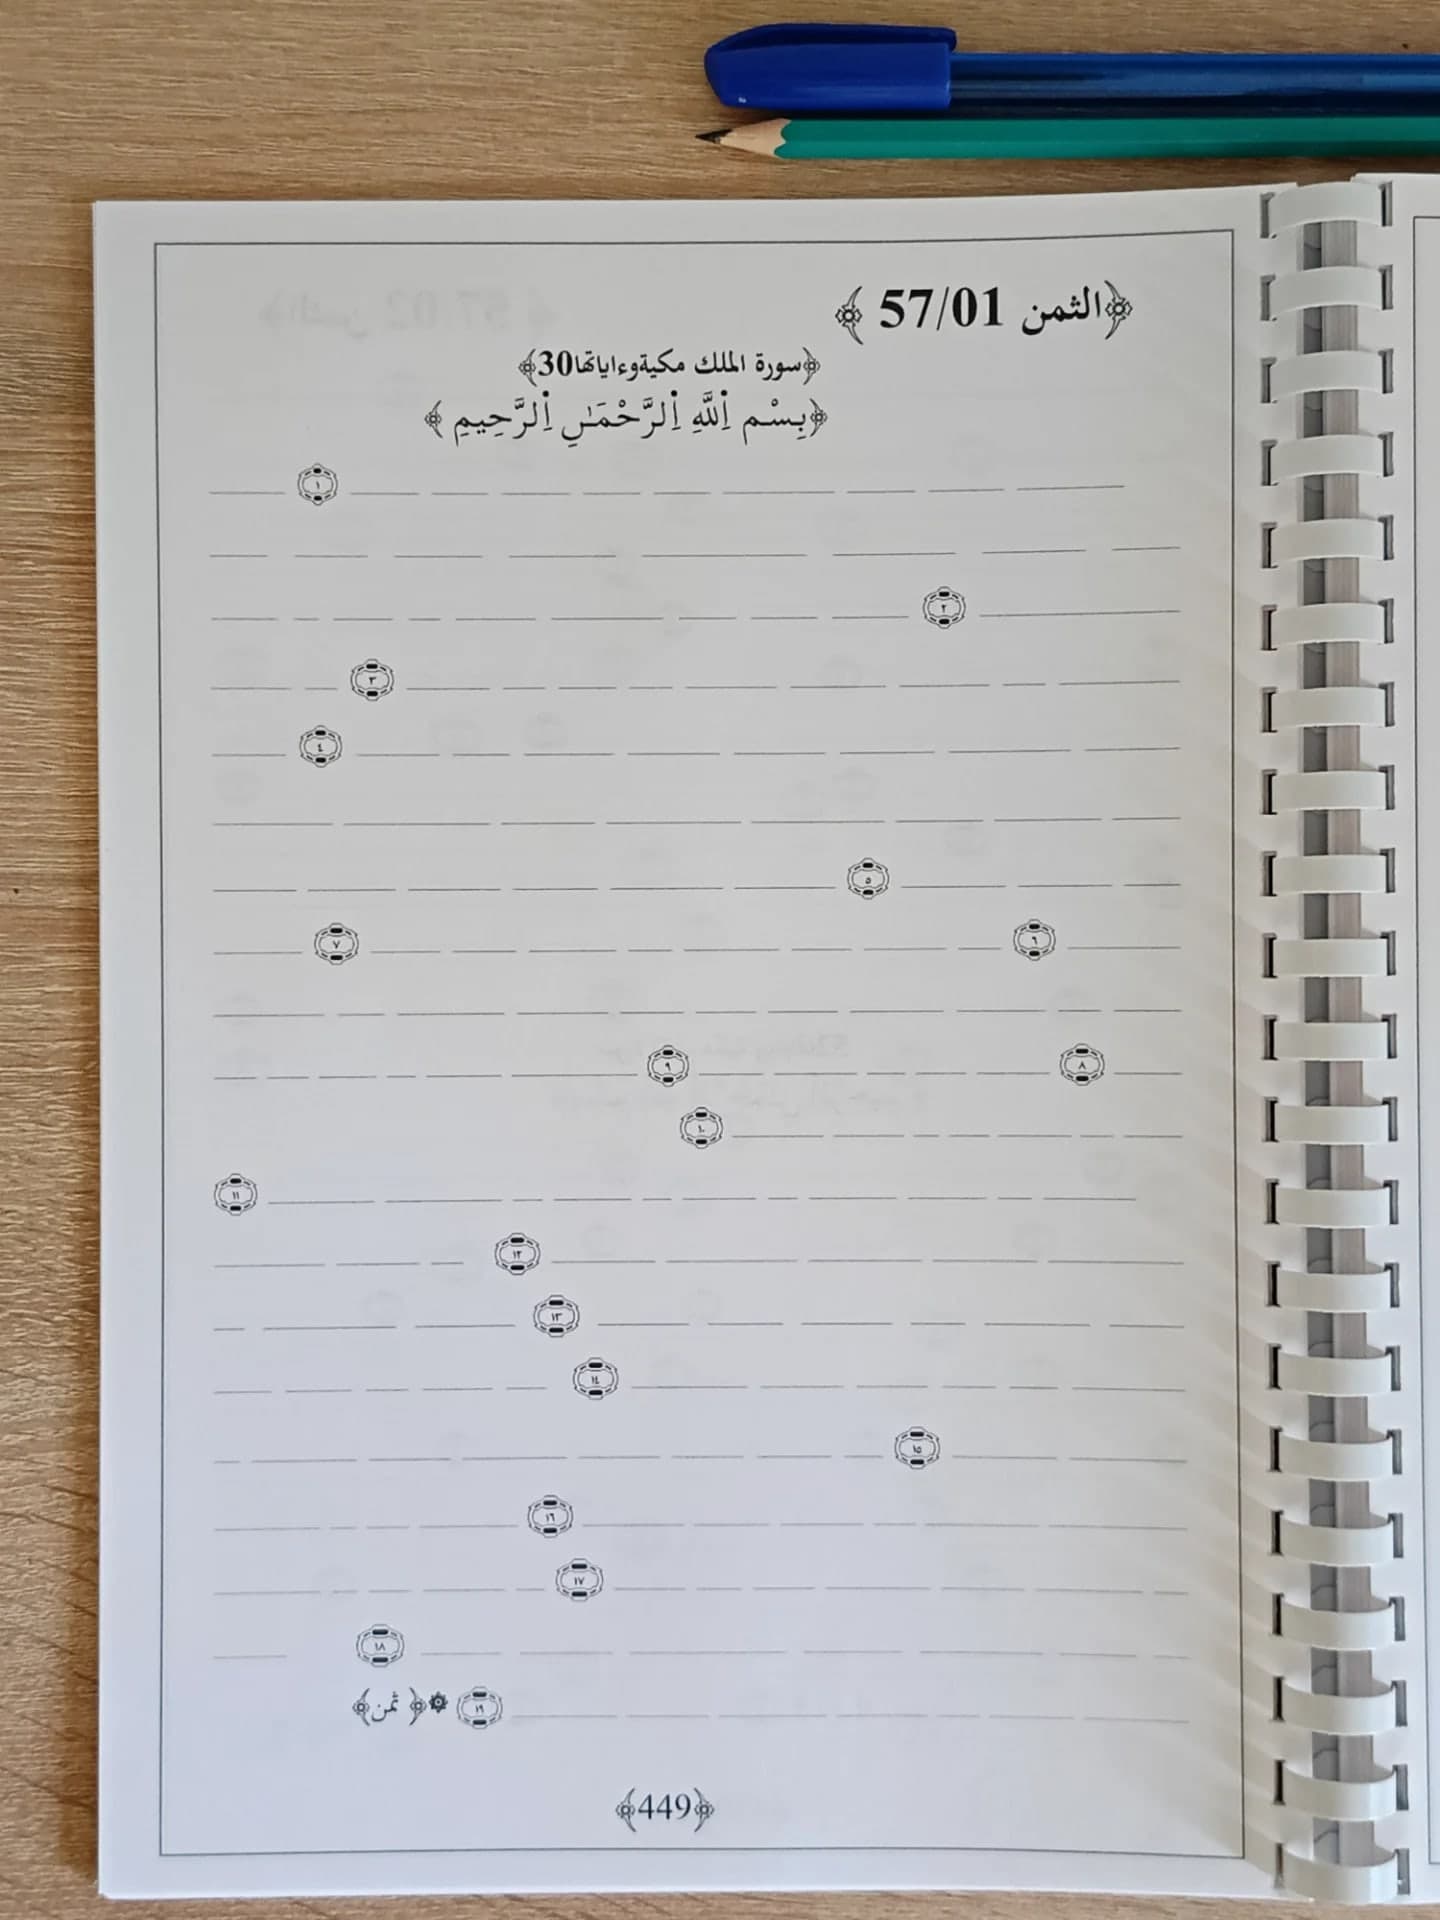 ﴿الثمن 57/01 ﴾
﴿سورة الملك مكيةوءاياتها30﴾
﴿بِسْمِ اِ۬للَّهِ اِ۬لرَّحْمَٰنِ اِ۬لرَّحِيمِ ﴾
١
٢
٣
٤
٥
٦ ٧
٨ ٩
١٠
١١
١٢
١٣
١٤
١٥
١٦
١٧
١٨
١٩ ۞﴿ ثمن﴾
﴿449﴾